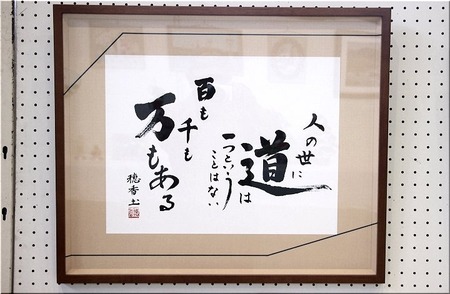 人の世に
道は
一つという
ことはない
百も
千も
万もある
穂香土